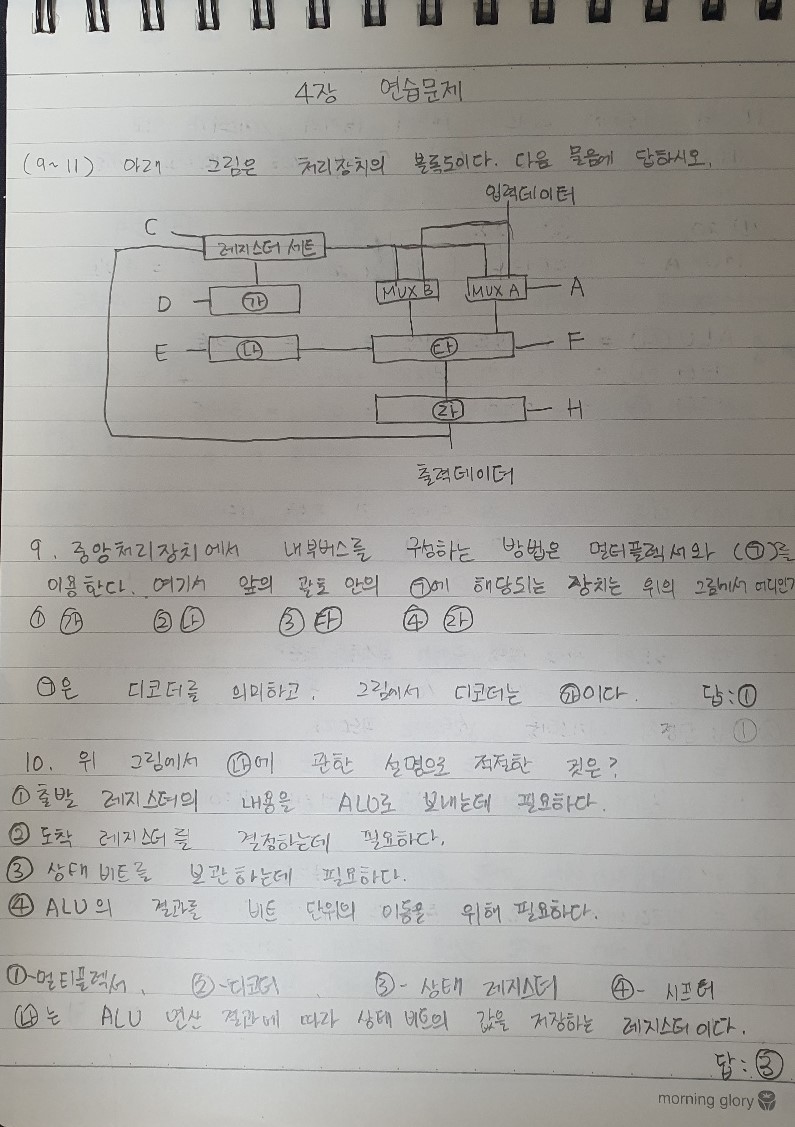 4장 연습문제
(9~11) 아래 그림은 처리장치의 블록도이다. 다음 물음에 답하시오.
입력데이터
C 레지스터 세트
D ㉮ MUX B MUX A A
E ㉯ ㉰ F
㉱ H
출력데이터
9. 중앙처리장치에서 내부버스를 구성하는 방법은 멀티플렉서와 (㉠)를
이용한다. 여기서 앞의 괄호 안의 ㉠에 해당되는 장치는 위의 그림에서 어디인가?
① ㉮ ② ㉯ ③ ㉰ ④ ㉱
㉠은 디코더를 의미하고, 그림에서 디코더는 ㉮이다. 답:①
10. 위 그림에서 ㉯에 관한 설명으로 적절한 것은?
① 출발 레지스터의 내용을 ALU로 보내는데 필요하다.
② 도착 레지스터를 결정하는데 필요하다.
③ 상태 비트를 보관하는데 필요하다.
④ ALU의 결과를 비트 단위의 이동을 위해 필요하다.
①-멀티플렉서. ②-디코더 ③- 상태 레지스터 ④- 시프터
㉯는 ALU 연산 결과에 따라 상태 비트의 값을 저장하는 레지스터이다.
답:③
morning glory